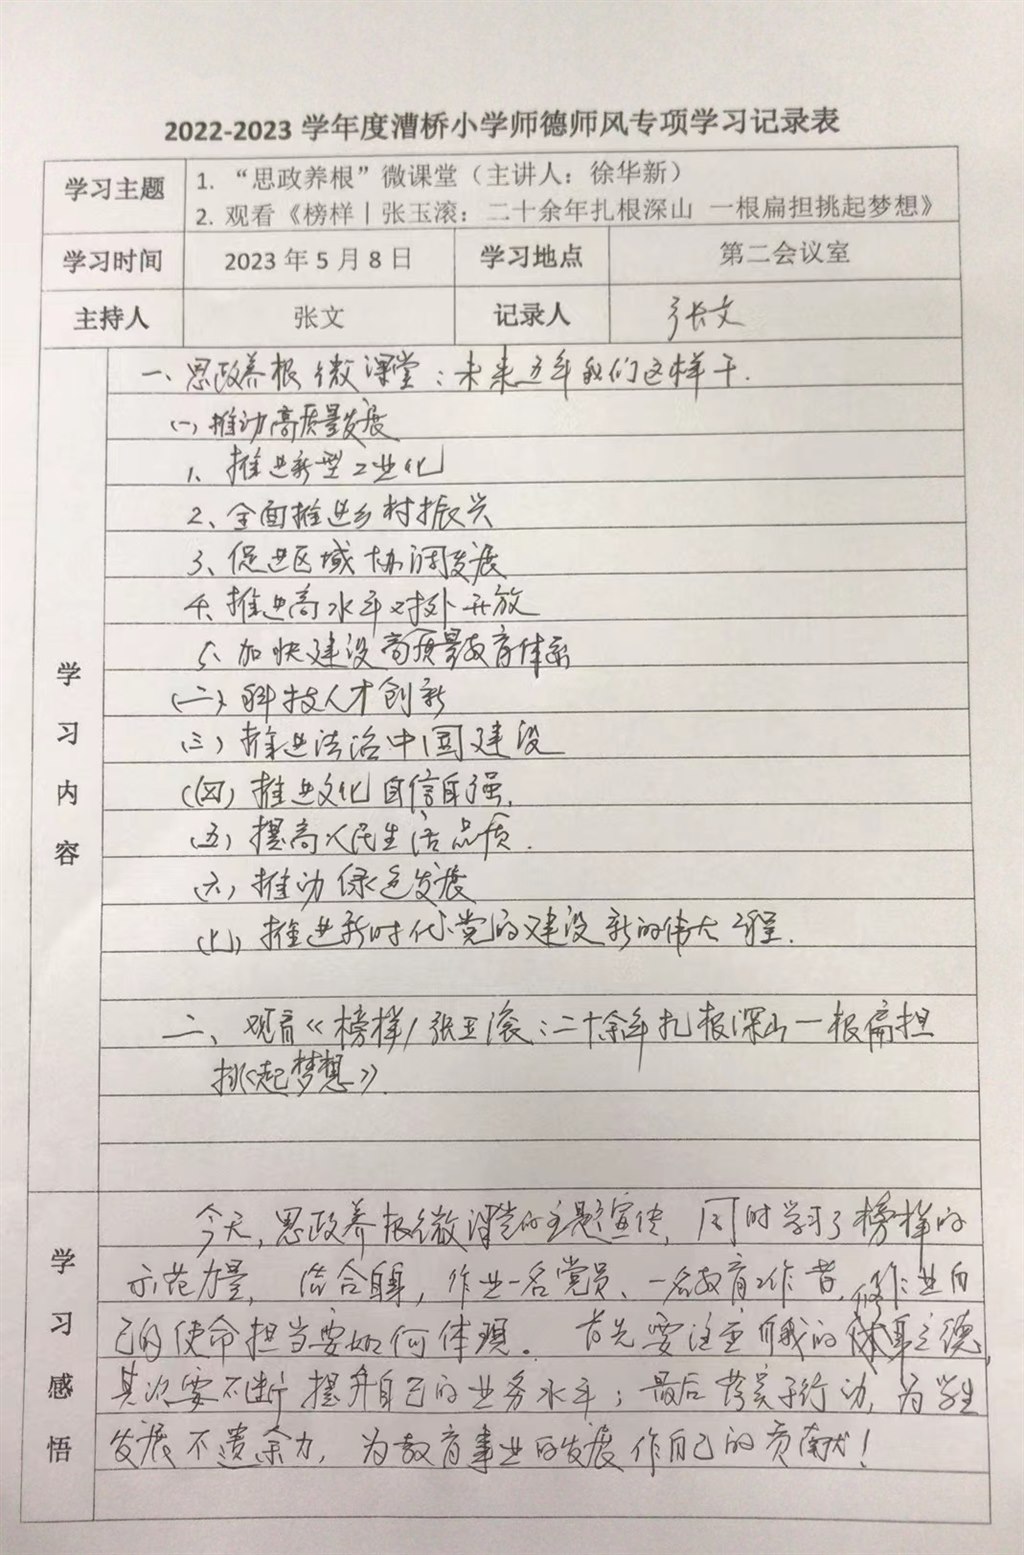 2022-2023 学年度漕桥小学师德师风专项学习记录表
学习主题
1. “思政养根”微课堂（主讲人：徐华新）
2. 观看《榜样|张玉滚：二十余年扎根深山 一根扁担挑起梦想》
学习时间 2023 年 5 月 8 日 学习地点 第二会议室
主持人 张文 记录人 张文
学习内容
一、思政养根微课堂：未来五年我们这样干.
(一) 推动高质量发展
1、推进新型工业化
2、全面推进乡村振兴
3、促进区域协调发展
4、推进高水平对外开放
5、加快建设高质量教育体系
(二) 科技人才创新
(三) 推进法治中国建设
(四) 推进文化自信自强.
(五) 提高人民生活品质.
(六) 推动绿色发展
(七) 推进新时代党的建设新的伟大工程.
二、观看《榜样/张玉滚：二十余年扎根深山一根扁担
挑起梦想》.
学习感悟
今天，思政养根微课堂的主题宣传，同时学习了榜样的
示范力量，结合自身，作业一名党员、一名教育工作者，作业自
己的使命担当要如何体现。首先要注重自我的修身立德，
其次要不断提升自己的业务水平；最后落实于行动，为学生
发展不遗余力，为教育事业的发展作自己的贡献！